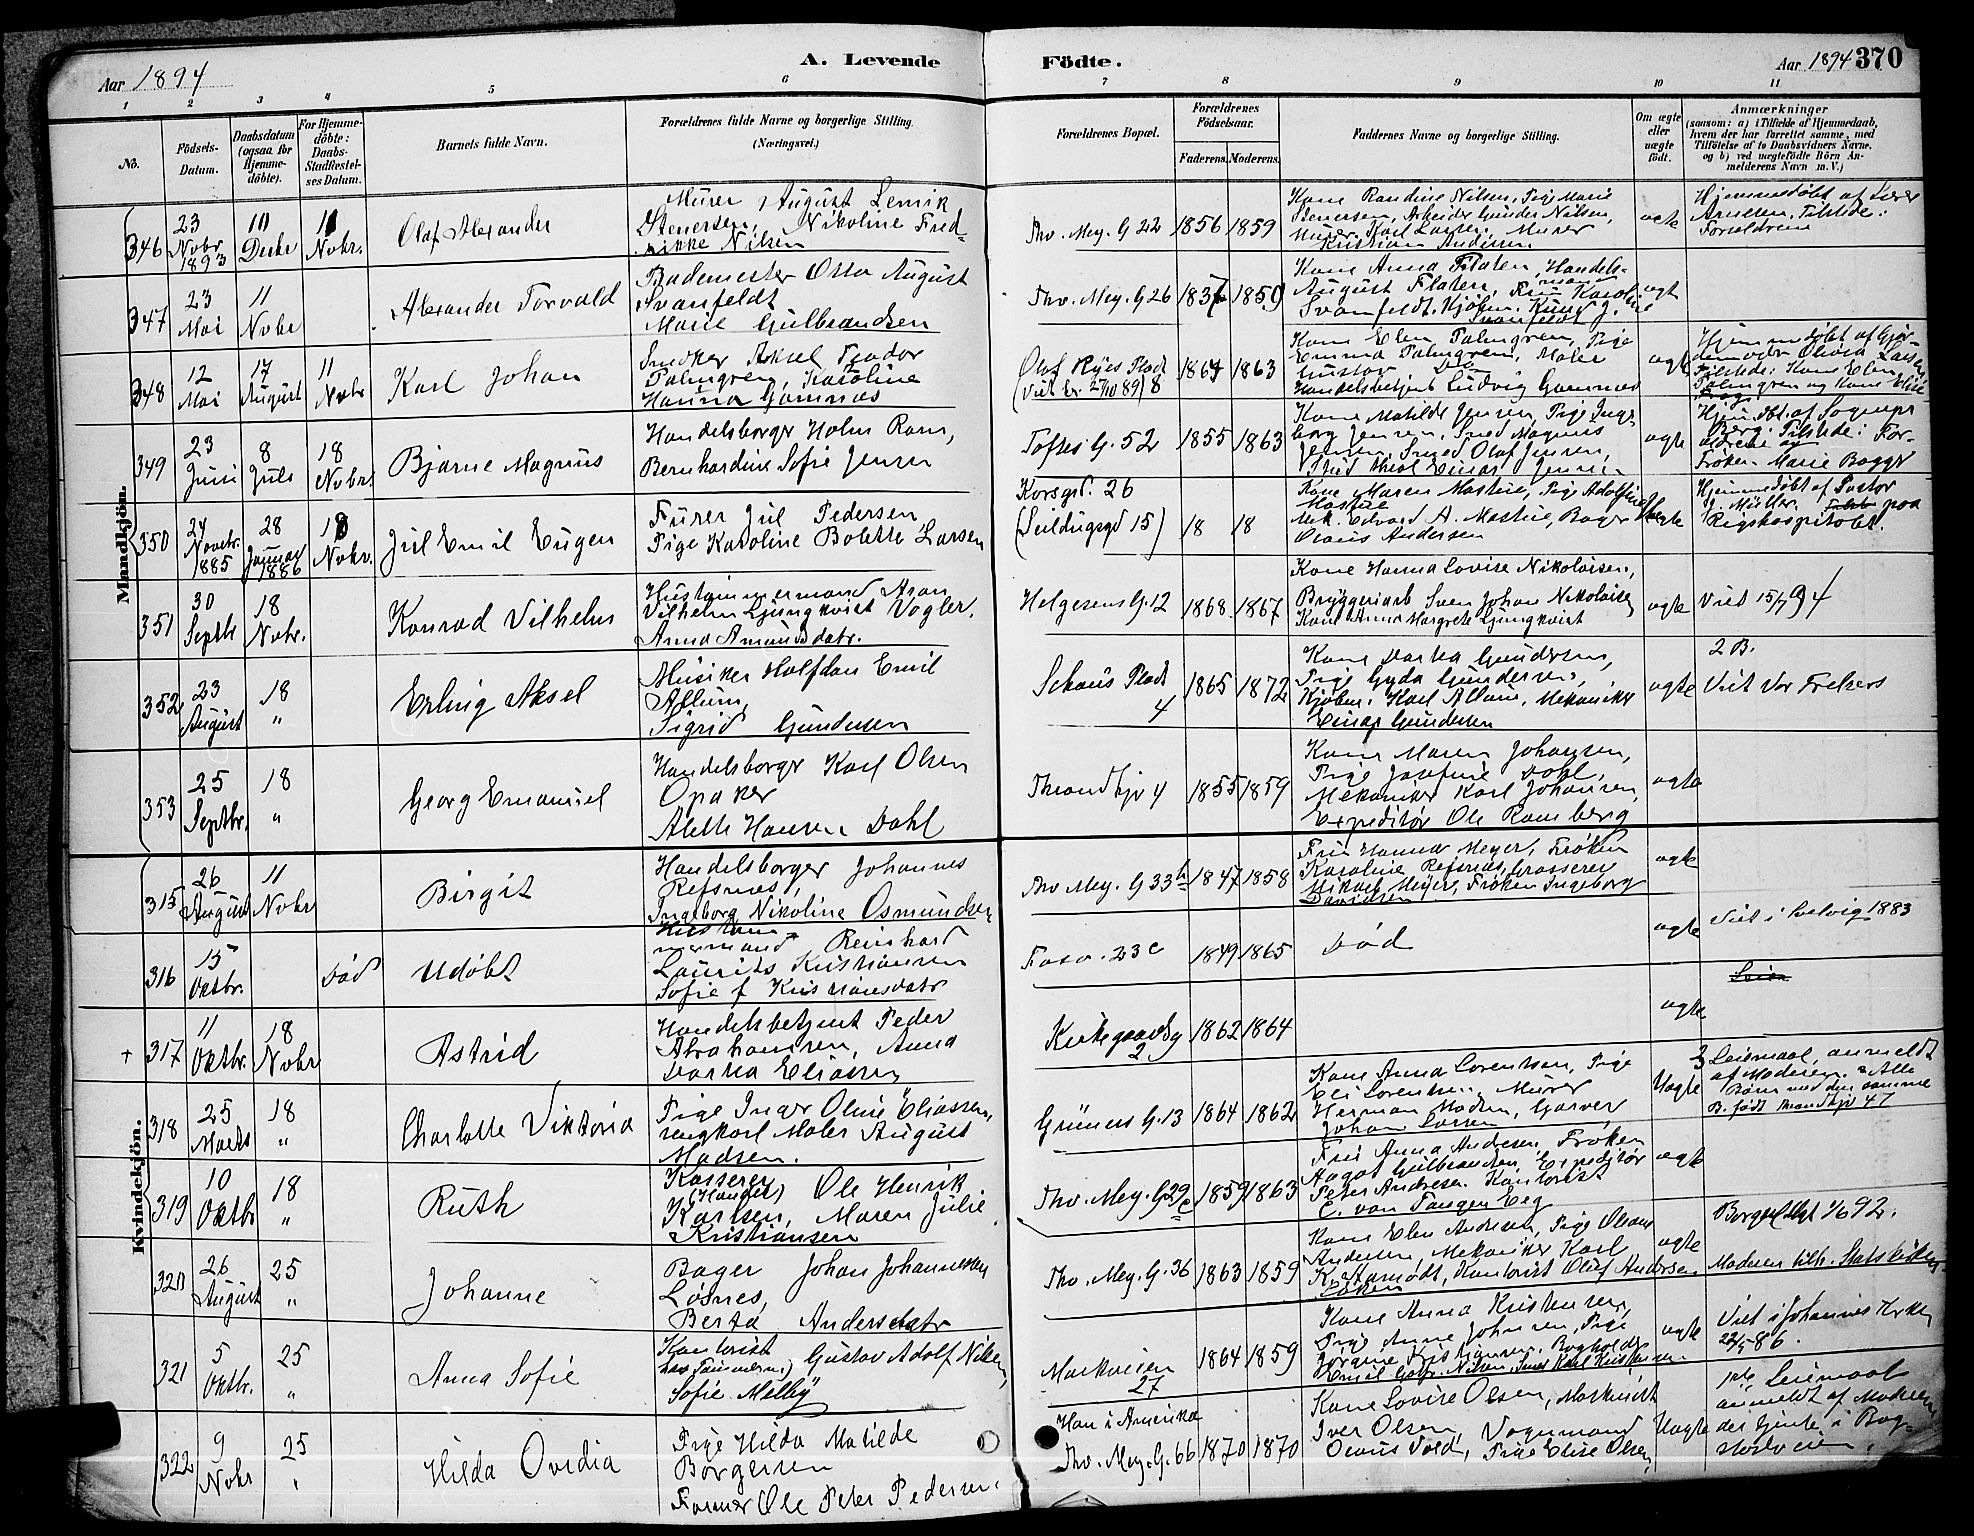 Aar 1894
A. Levende
Födte.
Aar 1894 370
1 2 3 4 5 6 7 8 9 10 11
No.
Födsels-
Datum.
Daabsdatum
(ogsaa for
Hjemme-
döbte).
For Hjemme-
döbte:
Daabs-
Stadfæstel-
ses Datum.
Barnets fulde Navn.
Forældrenes fulde Navne og borgerlige Stilling.
(Næringsvei.)
Forældrenes Bopæl.
Forældrenes
Födselsaar.
Faderens. Moderens.
Faddernes Navne og borgerlige Stilling.
Om ægte
eller
uægte
födt.
Anmærkninger
(saasom: a) i Tilfælde af Hjemmedaab,
hvem der har forrettet samme, med
Tilföielse af to Daabsvidners Navne,
og b) ved uægtefödte Börn An-
melderens Navn m. V.)
Mandkjön.
346
23
Novbr.
1893
10
Decbr
11
Novbr.
Olaf Alexander
Murer August Lenrik
Stenersen, Nikoline Fred-
rikke Nilsen
Thv. Mey. G 22
1856 1859
Kone Randine Nilsen, Pige Marie
Stenersen, Arbeider Gunder Nilsen,
Murer Karl Larsen, Murer
Kristian Andersen
ægte
Hjemmedøbt af
Arnesen, Tilstede:
Forældrene
347
23
Mai
11
Novbr
Alexander Torvald
Bademester Otto August
Svanfeldt
Marie Gulbrandsen
Thv. Mey. G 26
1837 1859
Kone Anna Flaten, Handels-
mand
August Flaten, Frue Karoline
Svanfeldt, Kjøbm. Knud J.
Svanfeldt
ægt
348
12
Mai
17
August
11
Novbr
Karl Johan
Snedker Aksel Teodor
Palmgren, Karoline
Hanna Gamnæs
Olaf Ryes Plads
(Viet br 27/10 89) 8
1867 1863
Kone Elen Palmgren, Pige
Emma Palmgren, Maler
Gustav Do
Handelsbetjent Ludvig Gamnæs
ægte
Hjemmedøbt af Gjor-
demoder Olivia Larsen
Tilstede: Kone Elen
Palmgren og Kone Elise
349
23
Juni
8
Juli
18
Novbr
Bjarne Magnus
Handelsborger Holm Ram,
Bernhardine Sofie Jensen
Toftes G. 52
1855 1863
Kone Matilde Jensen, Pige Inge-
borg Jensen, Smed Magnus
Jensen, Smed Olaf Jensen,
Stud theol Einar Jensen
ægte
Hjemdøbt af Sognepr
Berg. Tilstede: For-
ældrene og
Frøken Marie Bagge
350
24
Novbr.
1885
28
Januar
1886
18
Novbr.
Jul Emil Eugen
Furer Jul Pedersen
Pige Karoline Bolette Larsen
Korsgd. 26
15)
18 18
Kone Maren Mastue, Pige Adolfine
Mastue
Mek. Edvard A. Mastue, Bager
Olaus Andersen
Uægte
Hjemmedøbt af Pastor
J. Müller. paa
Rigshospitalet.
351
30
Septbr
18
Novbr.
Konrad Vilhelm
Hustømmermand Aron
Vilhelm Ljungkvist Vogler,
Anna Amundsdatr.
Helgesens G. 12
1868 1867
Kone Hanna Lovise Nikolaisen,
Bryggeriarb Sven Johan Nikolaisen
Kone Anna Margrete Ljungkvist
ægte
Viet 15/7 94
352
23
August
18
"
Erling Aksel
Musiker Halfdan Emil
Allum,
Sigrid Gundersen
Schous Plads
4
1865 1872
Kone Dorthea Gundersen,
Pige Gyda Gundersen,
Kjøbm. Karl Allum, Mekaniker
Einar Gundersen
ægte
2 B.
Viet Vor Frelsers
353
25
Septbr.
18
"
Georg Emanuel
Handelsborger Karl Olsen
Opaker
Alette Hansen Dahl
Throndhjv 4
1855 1859
Kone Maren Johansen,
Pige Josefine Dahl,
Mekaniker Karl Johansen,
Expeditør Ole Ramberg
ægte
Kvindekjön.
315
26
August
11
Novbr
Birgit
Handelsborger Johannes
Refsnæs,
Ingeborg Nikoline Osmundsen
Thv. Mey. G 33 b
1847 1858
Frue Hanna Meyer, Frøken
Karoline Refsnæs, Grosserer
Mikael Meyer, Frøken Ingeborg
Davidsen
ægte
316
15
Oktbr.
Død
Udøbt
Hustøm-
mermand Reinhard
Laurits Kristiansen
Sofie f Kristiansdatr
Fossv. 23 c
1849 1865
Død
ægte
Viet i Svelvig 1883
+ 317
11
Oktbr.
18
Novbr
Astrid
Handelsbetjent Peder
Abrahamsen, Anna
Dorthea Eliasen
Kirkegaardsg
2
1862 1864
ægte
318
25
Marts
18
"
Charlotte Viktoria
Pige Inger Oline Eliassen,
ungkarl Maler August
Madsen.
Grüners G. 13
1864 1862
Kone Anna Lorentsen, Pige
Eli Lorentsen, Murer
Herman Madsen, Garver
Johan Larsen
Uægte
3 Leiermaal, anmeldt
af Moderen. Alle
Børn med den samme
B. født Throndhjv 47
319
10
Oktbr
18
"
Ruth
Kasserer
(Handel) Ole Henrik
Karlsen, Maren Julie
Kristiansen
Thv. Mey. G 29 c
1859 1863
Frue Anna Andresen, Frøken
Aagot Gulbrandsen, Expeditør
Peter Andresen, Kontorist
C. von Tangen Eeg
ægte
320
26
August
25
"
Johanne
Bager Johan Johannesen
Løsnes,
Berta Andersdatr
Thv. Mey. G. 36
1863 1859
Kone Elen Andersen, Pige Olava
Andersen, Mekaniker Karl
K. Aamødt, Kontorist Oluf Andersen
ægte
Borgerligt 1/6 92.
Moderen tilh. Statskirken
321
5
Oktbr.
25
"
Anna Sofie
Kontorist
Gustav Adolf Nilsen,
Sofie Melby
Markveien
27
1864 1859
Kone Anna Kristensen,
Pige Anne Johnsen, Pige
Jørgine Kristiansen, Bogholder
Emil Nilsen, Smed Karl Kristensen.
ægte
Viet i Johannes Kirke
22/5 86.
322
9
Novbr
25
"
Hilda Ovidia
Pige Hilda Matilde
Børgersen
Former Ole Peter Pedersen.
Han i Amerika
Thv. Mey. G. 66
1870 1870
Kone Lovise Olsen, Maskinist
Iver Olsen, Vognmand
Olaus Vold, Pige Elise Olsen
Uægte
1ste Leiermaal
anmeldt af Moderen,
der tjente i Bog-
stadveien.